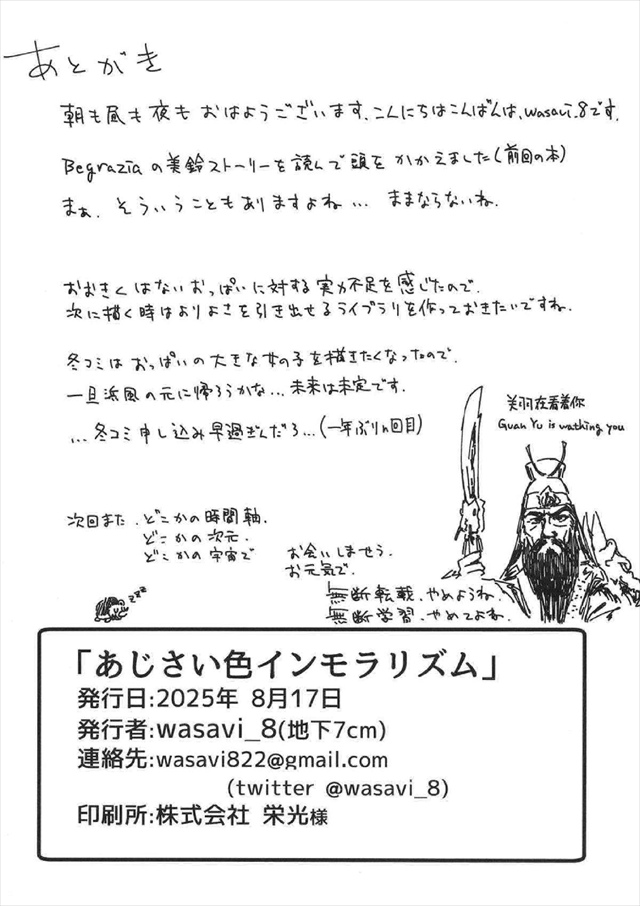 あとがき
朝も昼も夜も おはようございます、こんにちはこんばんは、wasavi_8です。
Begraziaの美鈴ストーリーを読んで頭をかかえました(前回の本)
まぁ、そういうこともありますよね… ままならないね。
おおきくはないおっぱいに対する実力不足を感じたので、
次に描く時はよりよさを引き出せるライブラリを作っておきたいですね。
冬コミはおっぱいの大きな女の子を描きたくなったので、
一旦浜風の元に帰ろうかな… 未来は未定です。
…冬コミ申し込み早過ぎんだろ…(一年ぶりn回目)
美羽在看着你
Guan Yu is wathing you
次回また、どこかの時間軸、
どこかの次元、
どこかの宇宙で
お会いしませう。
お元気で。
zzz
無断転載、やめようね。
無断学習、やめてよね。
「あじさい色インモラリズム」
発行日:2025年 8月17日
発行者:wasavi_8(地下7cm)
連絡先:wasavi822@gmail.com
(twitter @wasavi_8)
印刷所:株式会社 栄光様